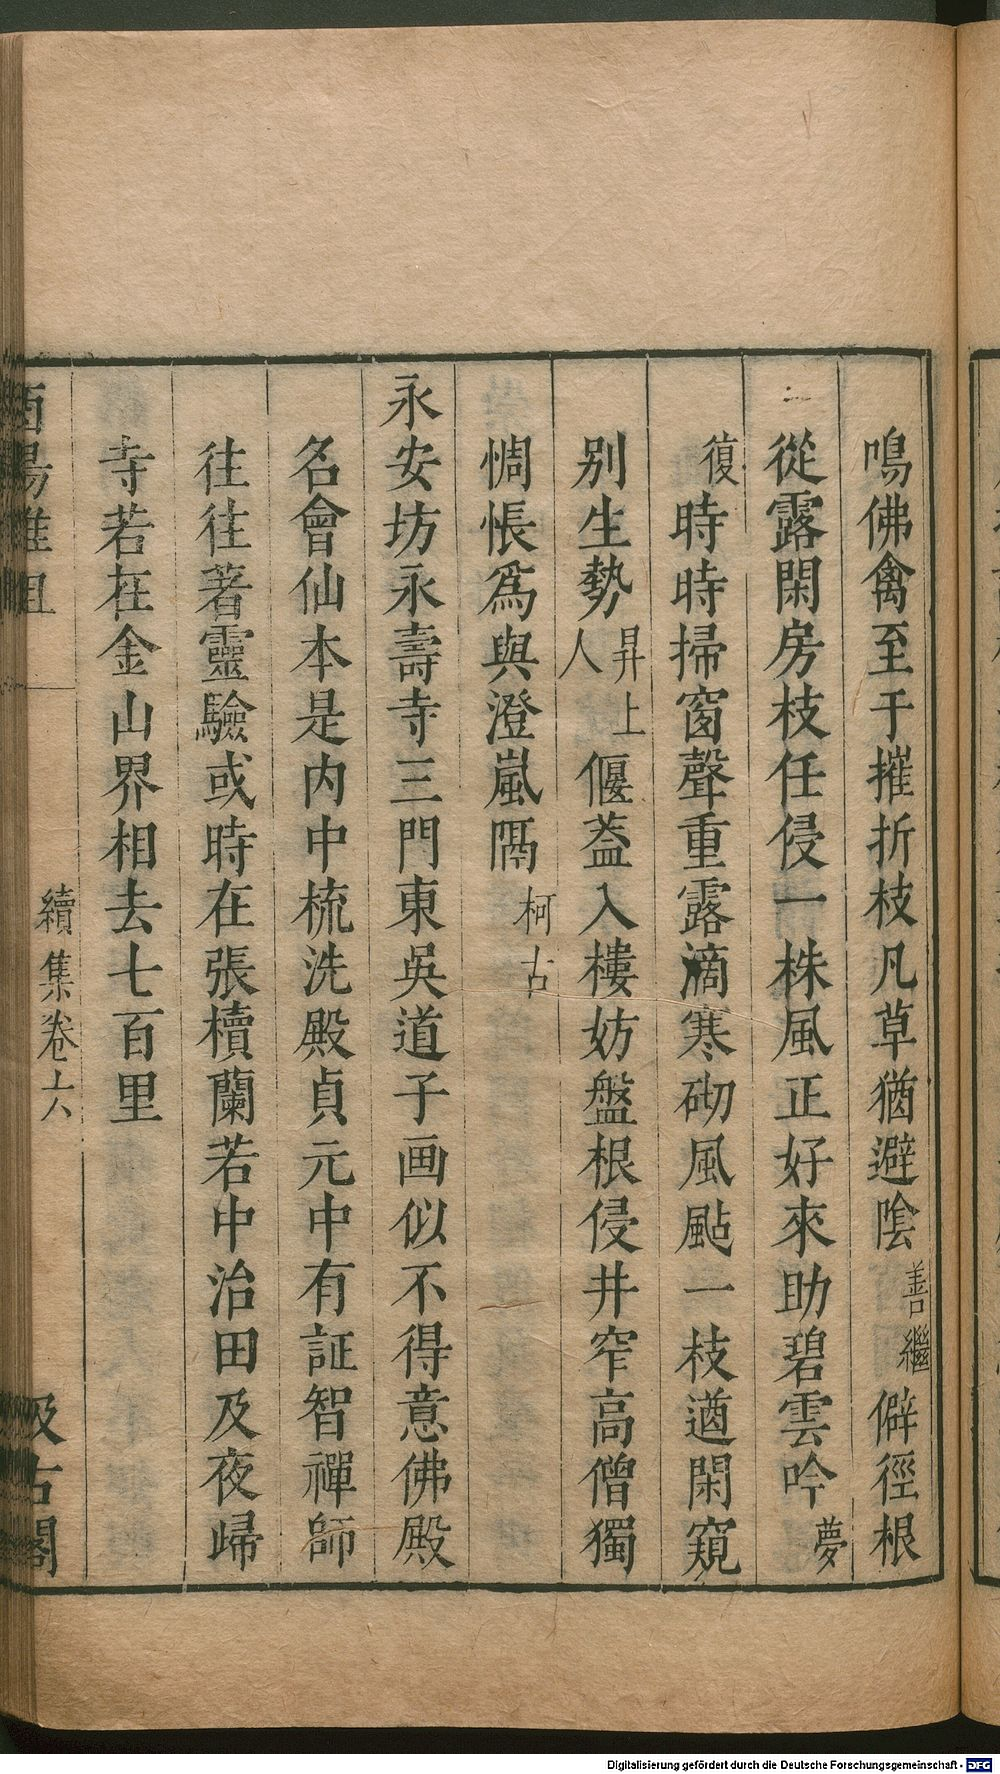 鳴佛禽至于摧折枝凡草猶避陰善繼僻徑根
從露閑房枝任侵一株風正好來助碧雲吟夢
復時時掃窗聲重露滴寒砌風颭一枝遒閑窺
別生勢昇上人偃蓋入樓妨盤根侵井窄高僧獨
惆悵爲與澄嵐隔柯古
永安坊永壽寺三門東吳道子画似不得意佛殿
名會仙本是内中梳洗殿貞元中有証智禪師
往往著靈驗或時在張櫝蘭若中治田及夜歸
寺若在金山界相去七百里
酉陽雜俎 續集卷六 汲古閣
Digitalisierung gefördert durch die Deutsche Forschungsgemeinschaft - DFG